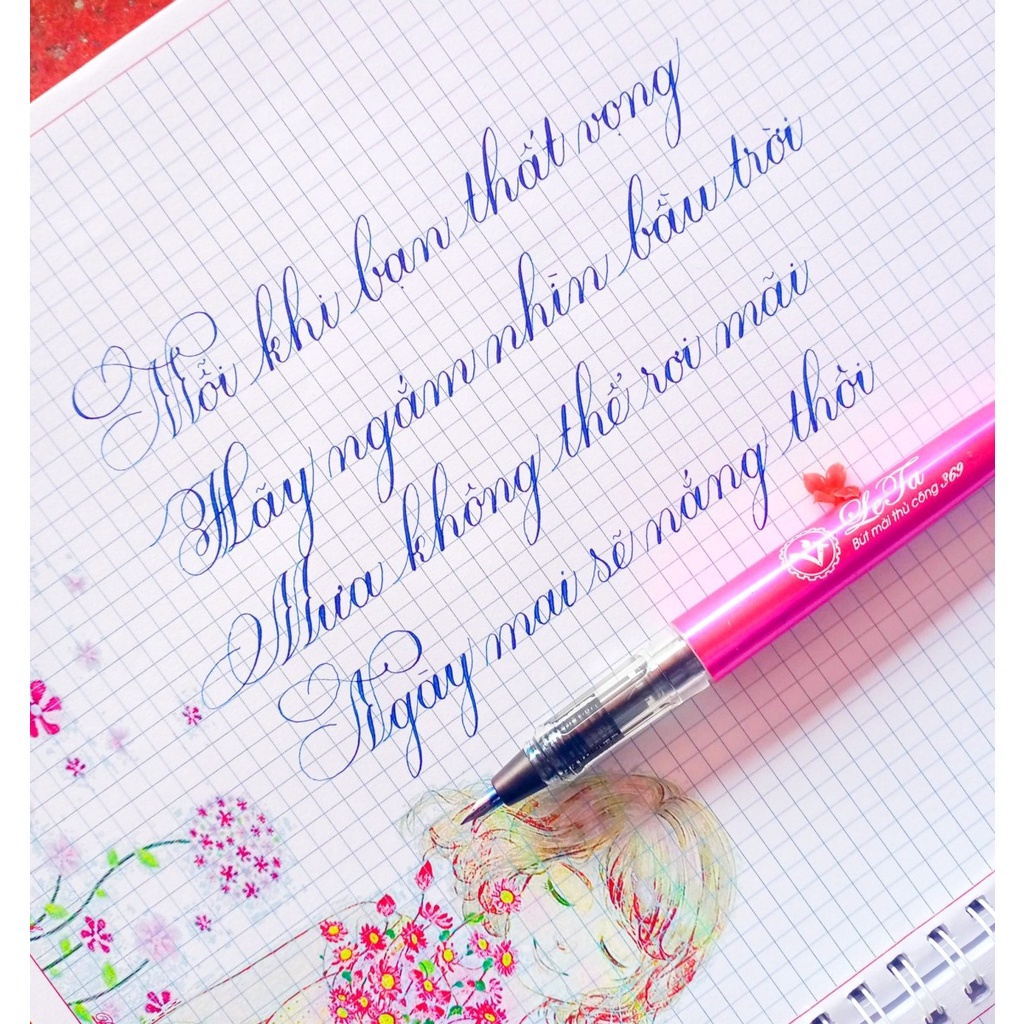 Mỗi khi bạn thất vọng
Hãy ngắm nhìn bầu trời
Mưa không thể rơi mãi
Ngày mai sẽ nắng thôi
Lê Ta
Bút mài thủ công 369